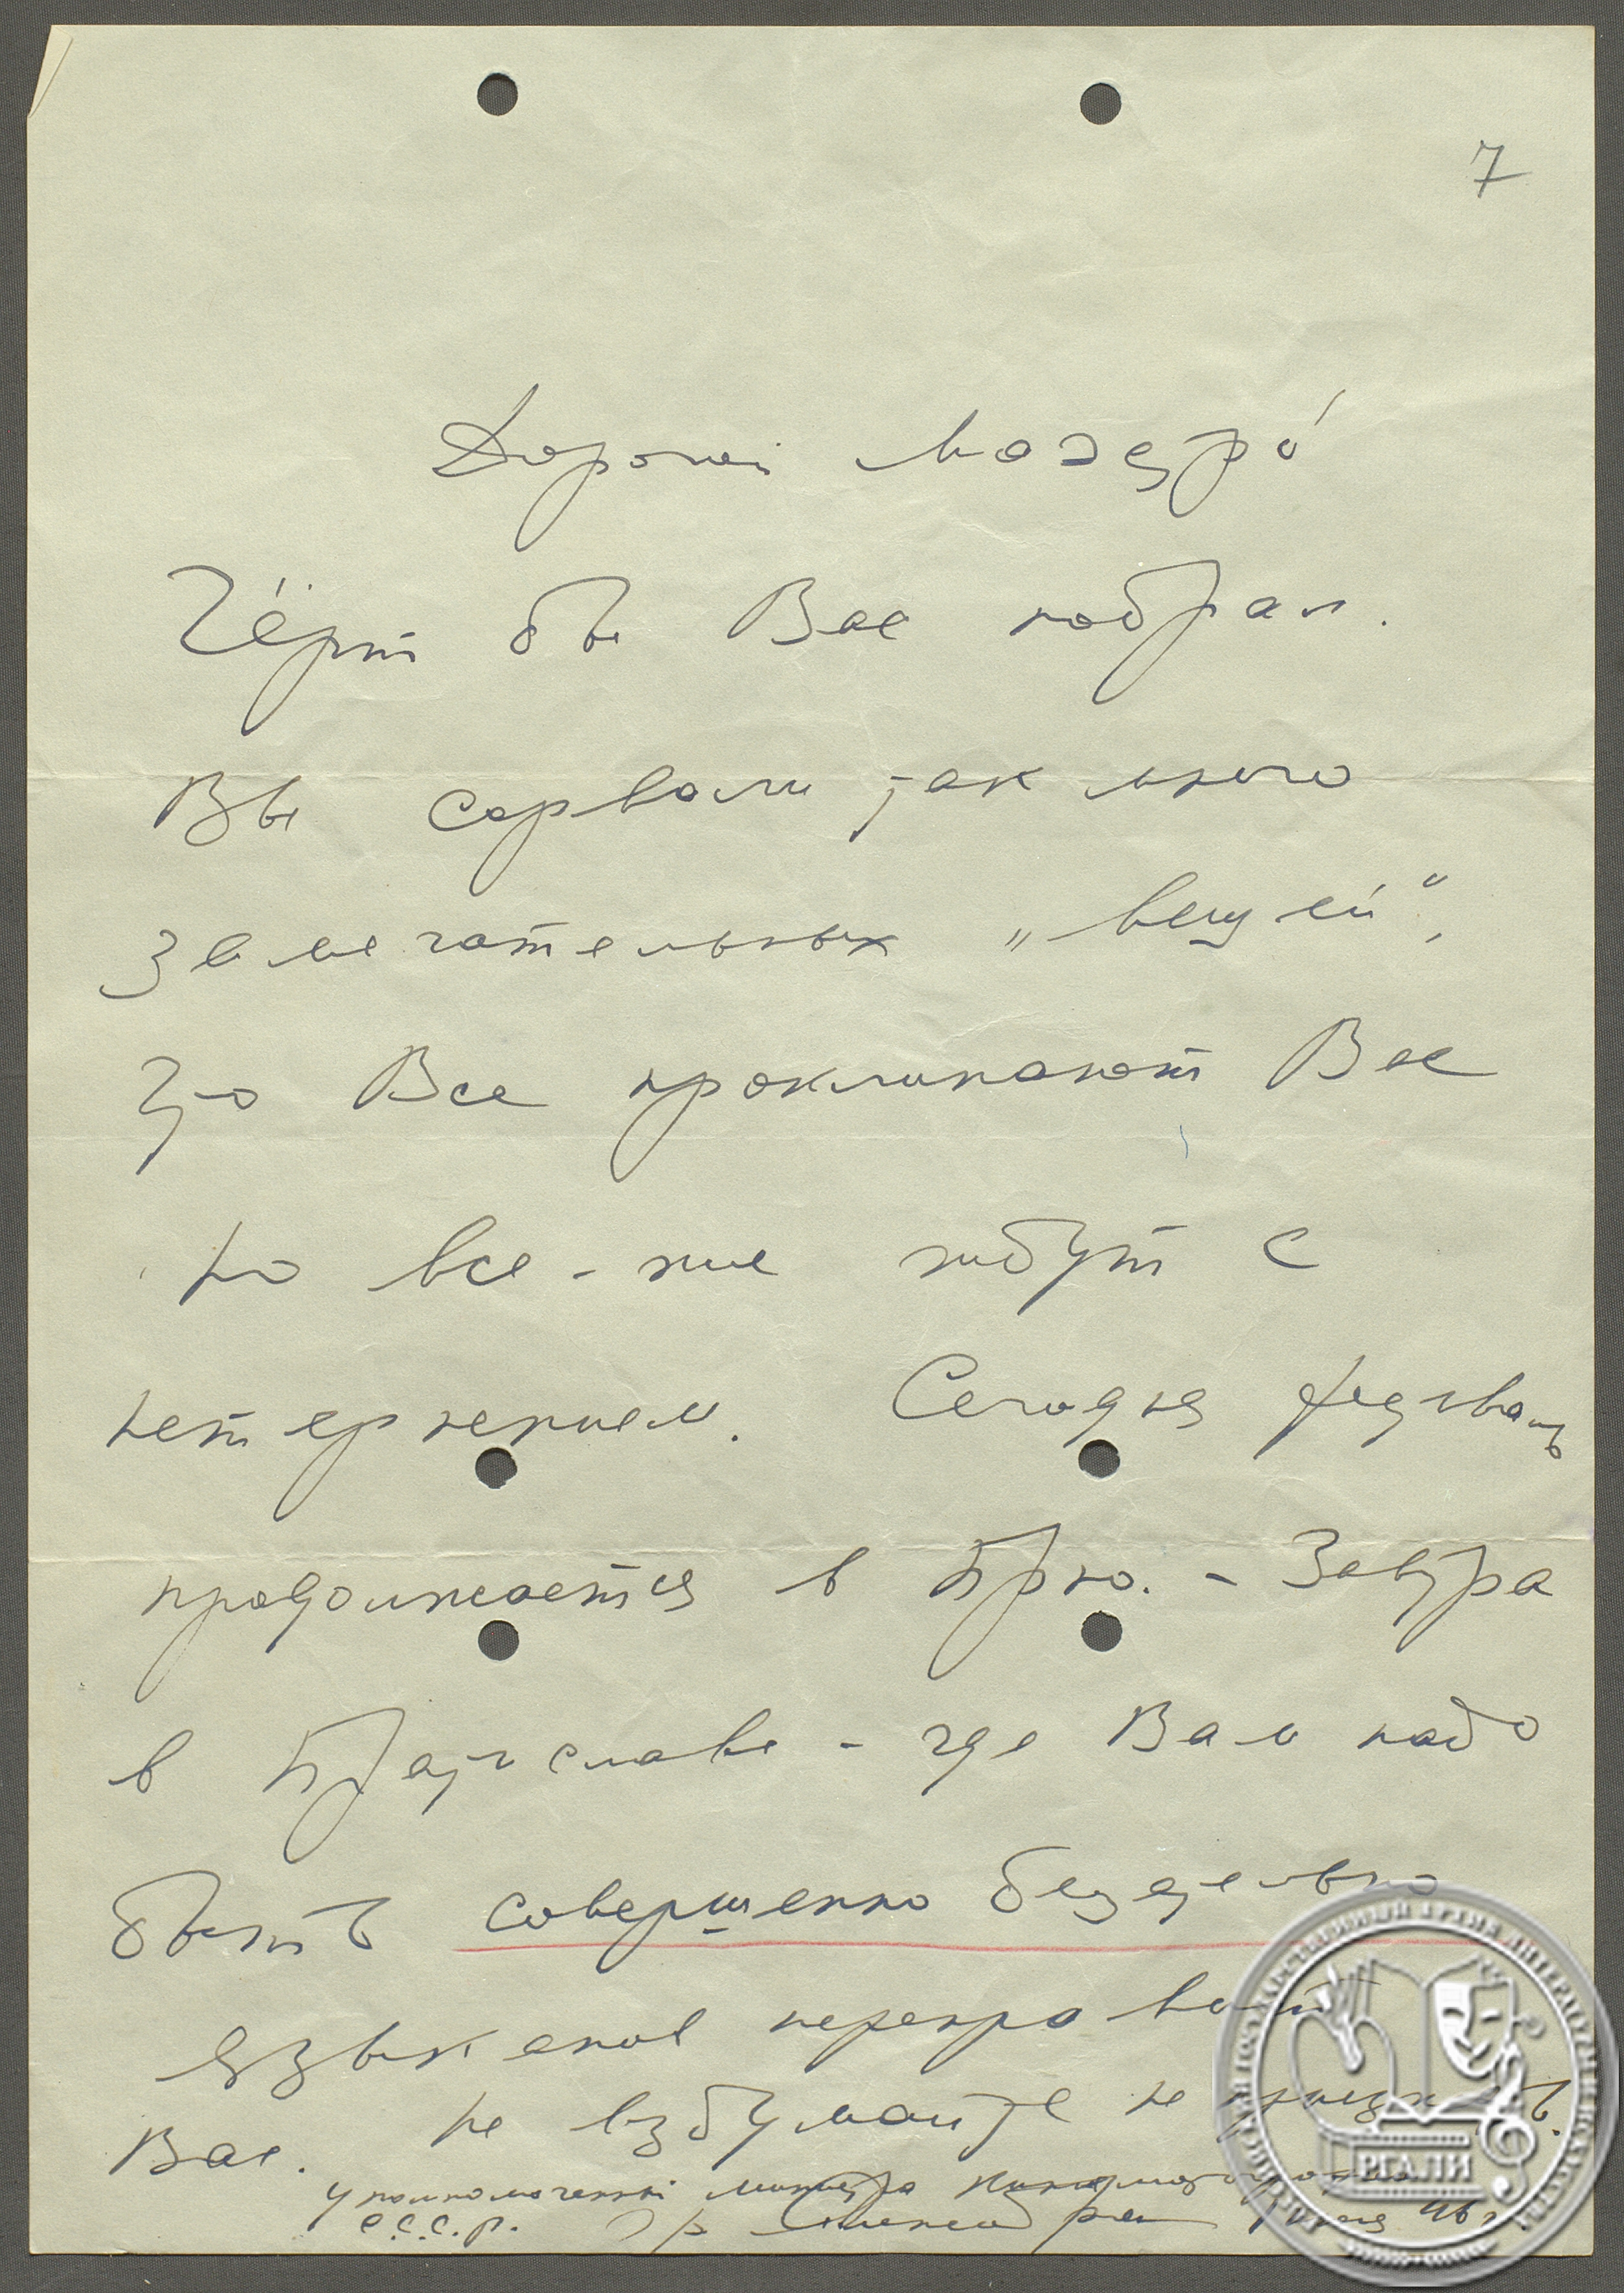 7
Дорогой Маэстро
Чёрт бы Вас побрал.
Вы сорвали так много
замечательных „вещей",
что Все проклинают Вас
но все-же ждут с
нетерпением. Сегодня фестиваль
продолжается в Брно. - Завтра
в Братиславе - где Вам надо
быть совершенно
переправит
Вас. Не вздумайте не приехать.
Уполномоченный министра кинематографии
С.С.С.Р. 46 г.
РГАЛИ